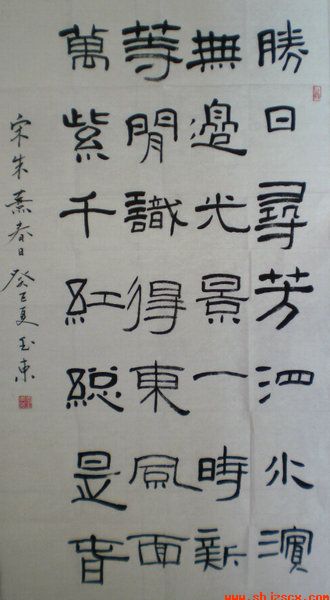 勝日尋芳泗水濱
無邊光景一時新
等閒識得東風面
萬紫千紅總是春
宋朱熹春日癸巳夏玉東
www.shizscx.com